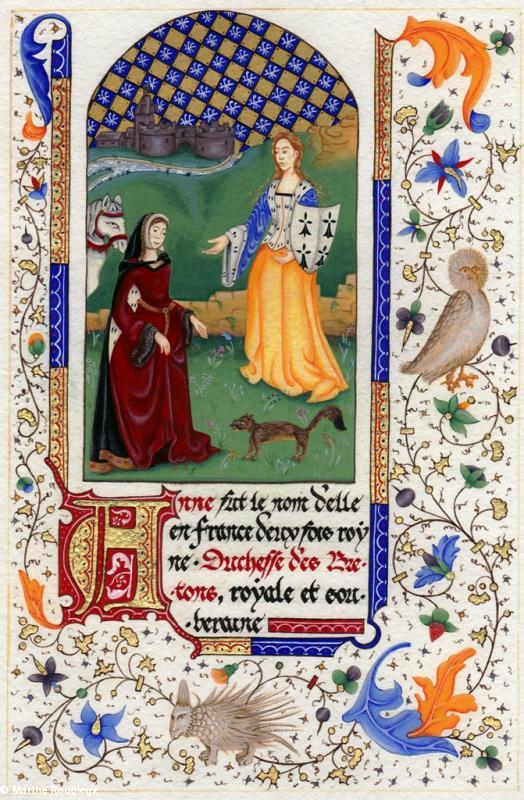 Anne fut le nom d'elle
en france deux fois roy
ne · Duchesse des Bre-
tons, royale et sou-
veraine
© Marthe Rougieux